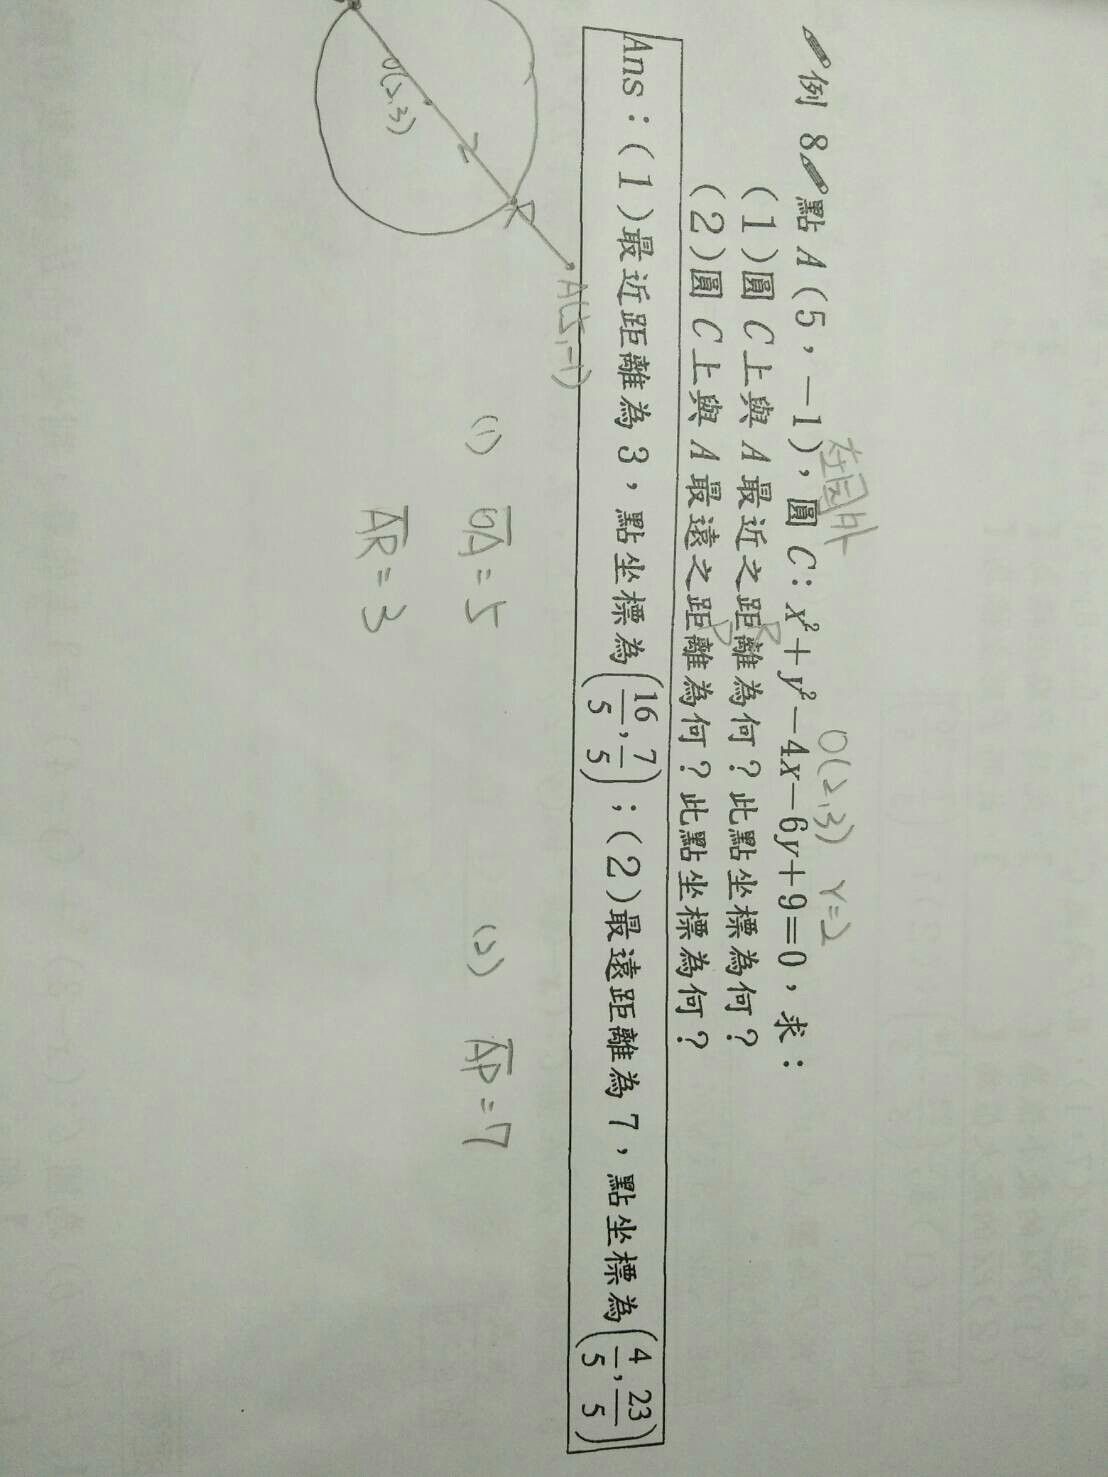 在圓外
O(2,3) r=2
例 8 點 A(5,-1),圓 C:x²+y²-4x-6y+9=0,求:
(1)圓 C 上與 A 最近之距離為何?此點坐標為何?
R
(2)圓 C 上與 A 最遠之距離為何?此點坐標為何?
P
Ans:(1)最近距離為 3,點坐標為(16/5,7/5);(2)最遠距離為 7,點坐標為(4/5,23/5)
O(2,3)
2
R
A(5,-1)
(1) OA=5
AR=3
(2) AP=7